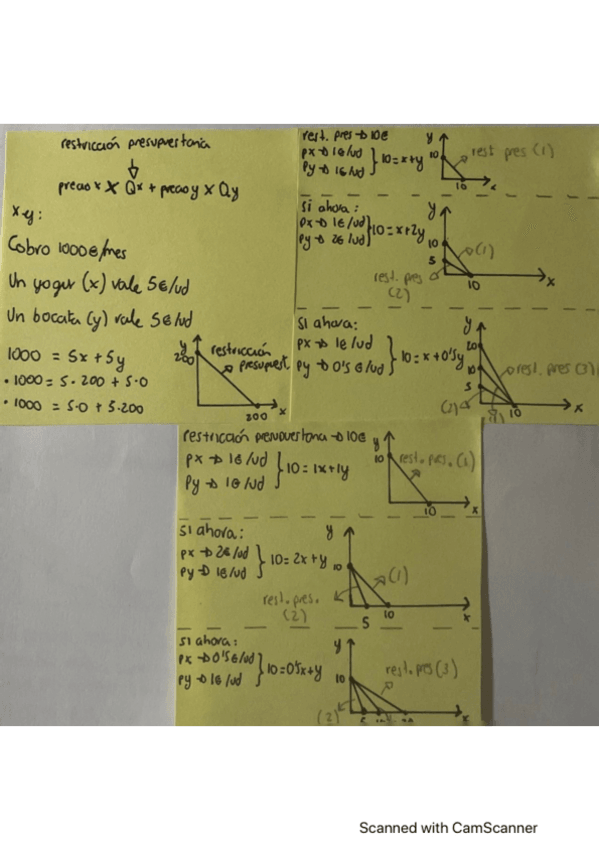 restricción presupuestaria
precio x X Qx + precio y X Qy
x ej:
Cobro 1000€/mes
Un yogur (x) vale 5€/ud
Un bocata (y) vale 5€/ud
1000 = 5x + 5y
• 1000 = 5·200 + 5·0
• 1000 = 5·0 + 5·200
y
200
restricción
presupuest.
200
x
rest. pres → 10€
px → 1€/ud
py → 1€/ud
10 = x+y
y
10
rest pres (1)
10
x
si ahora:
px → 1€/ud
py → 2€/ud
10 = x+2y
y
10
(1)
5
rest. pres
(2)
10
x
si ahora:
px → 1€/ud
py → 0'5 €/ud
10 = x + 0'5y
y
20
10
rest. pres (3)
5
(2)
(1)
10
x
restricción presupuestaria → 10€
px → 1€/ud
py → 1€/ud
10 = 1x+1y
y
10
rest. pres. (1)
10
x
si ahora:
px → 2€/ud
py → 1€/ud
10 = 2x+y
y
10
(1)
rest. pres.
(2)
5
10
x
si ahora:
px → 0'5€/ud
py → 1€/ud
10 = 0'5x+y
y
10
rest. pres (3)
(2)
x
Scanned with CamScanner